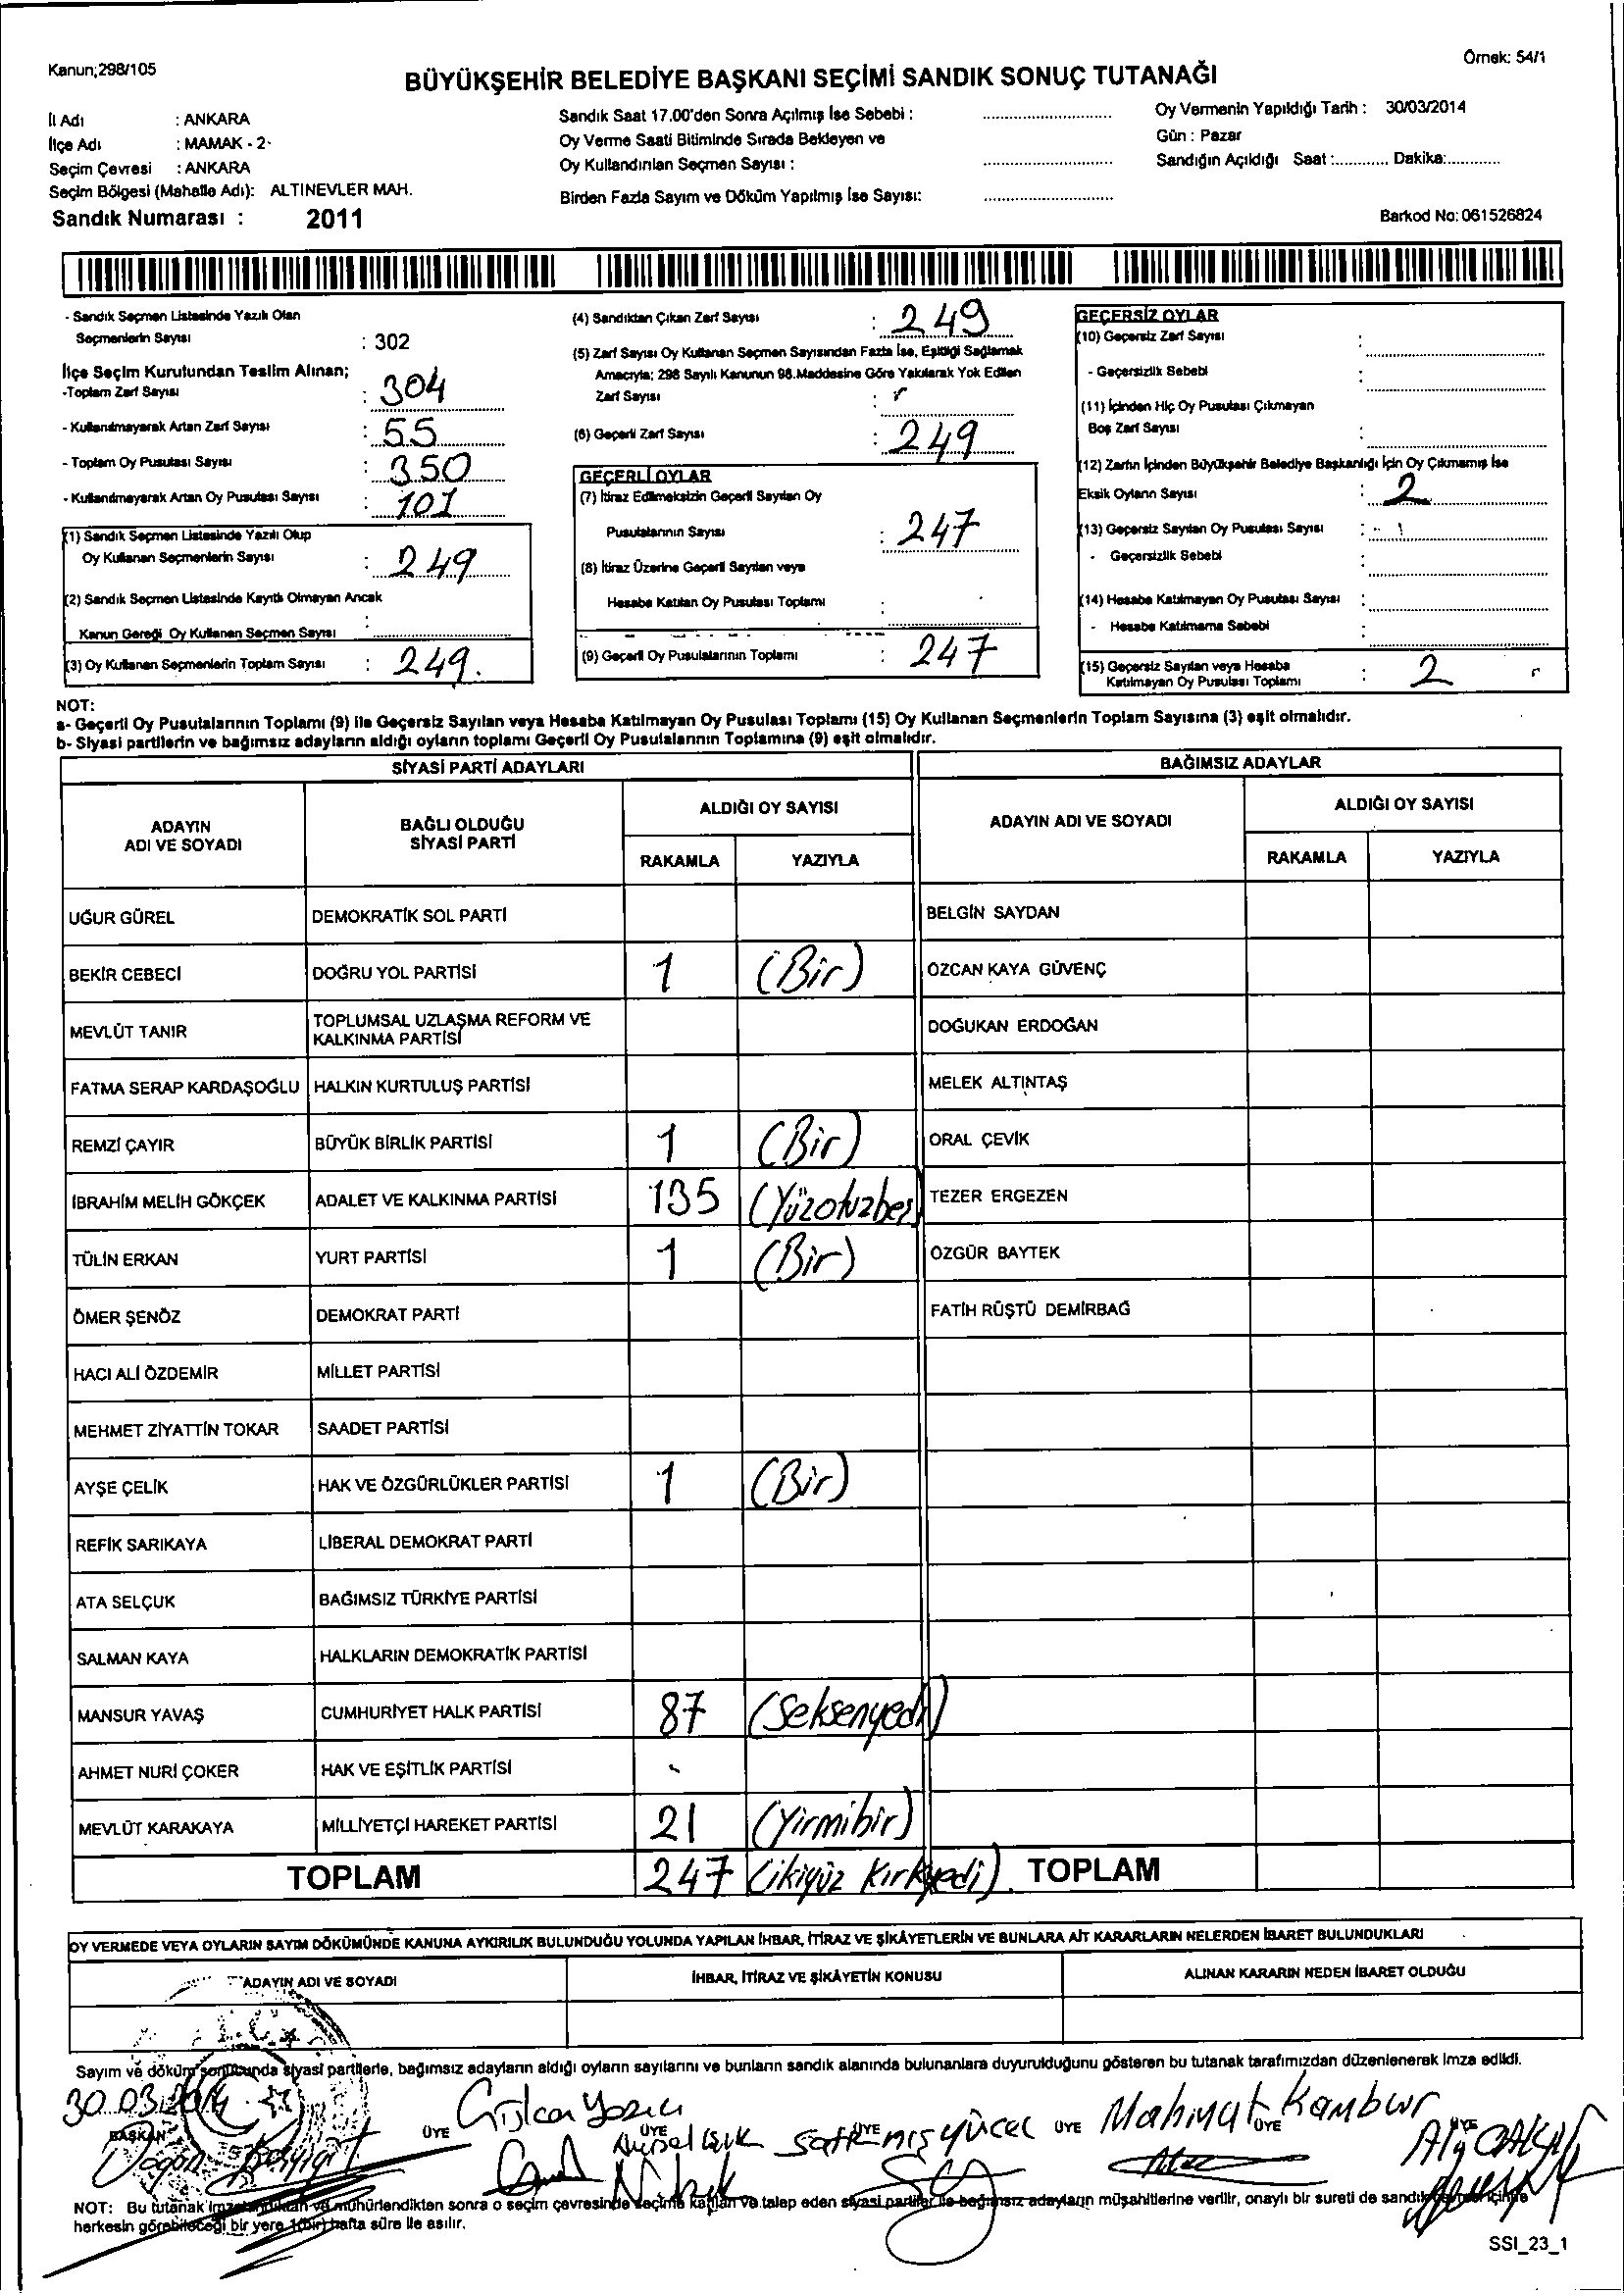 Kanun;298/105
Örnek: 54/1
BÜYÜKŞEHİR BELEDİYE BAŞKANI SEÇİMİ SANDIK SONUÇ TUTANAĞI
İl Adı : ANKARA
İlçe Adı : MAMAK - 2-
Seçim Çevresi : ANKARA
Seçim Bölgesi (Mahalle Adı): ALTINEVLER MAH.
Sandık Numarası : 2011
Sandık Saat 17.00'den Sonra Açılmış İse Sebebi :
Oy Verme Saati Bitiminde Sırada Bekleyen ve
Oy Kullandırılan Seçmen Sayısı :
Birden Fazla Sayım ve Döküm Yapılmış İse Sayısı:
Oy Vermenin Yapıldığı Tarih : 30/03/2014
Gün : Pazar
Sandığın Açıldığı Saat :............ Dakika:............
Barkod No: 061526824
- Sandık Seçmen Listesinde Yazılı Olan
Seçmenlerin Sayısı : 302
İlçe Seçim Kurulundan Teslim Alınan;
-Toplam Zarf Sayısı : 304
- Kullanılmayarak Artan Zarf Sayısı : 55
- Toplam Oy Pusulası Sayısı : 350
- Kullanılmayarak Artan Oy Pusulası Sayısı : 101
(1) Sandık Seçmen Listesinde Yazılı Olup
Oy Kullanan Seçmenlerin Sayısı : 249
(2) Sandık Seçmen Listesinde Kayıtlı Olmayan Ancak
Kanun Gereği Oy Kullanan Seçmen Sayısı :
(3) Oy Kullanan Seçmenlerin Toplam Sayısı : 249.
(4) Sandıktan Çıkan Zarf Sayısı : 249
(5) Zarf Sayısı Oy Kullanan Seçmen Sayısından Fazla İse, Eşitliği Sağlamak
Amacıyla; 298 Sayılı Kanunun 98.Maddesine Göre Yakılarak Yok Edilen
Zarf Sayısı :
(6) Geçerli Zarf Sayısı : 249
GEÇERLİ OYLAR
(7) İtiraz Edilmeksizin Geçerli Sayılan Oy
Pusulalarının Sayısı : 247
(8) İtiraz Üzerine Geçerli Sayılan veya
Hesaba Katılan Oy Pusulası Toplamı :
(9) Geçerli Oy Pusulalarının Toplamı : 247
GEÇERSİZ OYLAR
(10) Geçersiz Zarf Sayısı :
- Geçersizlik Sebebi :
(11) İçinden Hiç Oy Pusulası Çıkmayan
Boş Zarf Sayısı :
(12) Zarfın İçinden Büyükşehir Belediye Başkanlığı İçin Oy Çıkmamış İse
Eksik Oyların Sayısı : 2
(13) Geçersiz Sayılan Oy Pusulası Sayısı :
- Geçersizlik Sebebi :
(14) Hesaba Katılmayan Oy Pusulası Sayısı :
- Hesaba Katılmama Sebebi :
(15) Geçersiz Sayılan veya Hesaba
Katılmayan Oy Pusulası Toplamı : 2
NOT:
a- Geçerli Oy Pusulalarının Toplamı (9) ile Geçersiz Sayılan veya Hesaba Katılmayan Oy Pusulası Toplamı (15) Oy Kullanan Seçmenlerin Toplam Sayısına (3) eşit olmalıdır.
b- Siyasi partilerin ve bağımsız adayların aldığı oyların toplamı Geçerli Oy Pusulalarının Toplamına (9) eşit olmalıdır.
SİYASİ PARTİ ADAYLARI BAĞIMSIZ ADAYLAR
ADAYIN ADI VE SOYADI BAĞLI OLDUĞU SİYASİ PARTİ ALDIĞI OY SAYISI ADAYIN ADI VE SOYADI ALDIĞI OY SAYISI
RAKAMLA YAZIYLA RAKAMLA YAZIYLA
UĞUR GÜREL DEMOKRATİK SOL PARTİ BELGİN SAYDAN
BEKİR CEBECİ DOĞRU YOL PARTİSİ 1 (Bir) ÖZCAN KAYA GÜVENÇ
MEVLÜT TANIR TOPLUMSAL UZLAŞMA REFORM VE KALKINMA PARTİSİ DOĞUKAN ERDOĞAN
FATMA SERAP KARDAŞOĞLU HALKIN KURTULUŞ PARTİSİ MELEK ALTINTAŞ
REMZİ ÇAYIR BÜYÜK BİRLİK PARTİSİ 1 (Bir) ORAL ÇEVİK
İBRAHİM MELİH GÖKÇEK ADALET VE KALKINMA PARTİSİ 135 (Yüzotuzbeş) TEZER ERGEZEN
TÜLİN ERKAN YURT PARTİSİ 1 (Bir) ÖZGÜR BAYTEK
ÖMER ŞENÖZ DEMOKRAT PARTİ FATİH RÜŞTÜ DEMİRBAĞ
HACI ALİ ÖZDEMİR MİLLET PARTİSİ
MEHMET ZİYATTİN TOKAR SAADET PARTİSİ
AYŞE ÇELİK HAK VE ÖZGÜRLÜKLER PARTİSİ 1 (Bir)
REFİK SARIKAYA LİBERAL DEMOKRAT PARTİ
ATA SELÇUK BAĞIMSIZ TÜRKİYE PARTİSİ
SALMAN KAYA HALKLARIN DEMOKRATİK PARTİSİ
MANSUR YAVAŞ CUMHURİYET HALK PARTİSİ 87 (Seksenyedi)
AHMET NURİ ÇOKER HAK VE EŞİTLİK PARTİSİ -
MEVLÜT KARAKAYA MİLLİYETÇİ HAREKET PARTİSİ 21 (Yirmibir)
TOPLAM 247 (ikiyüz Kırkyedi) TOPLAM
OY VERMEDE VEYA OYLARIN SAYIM DÖKÜMÜNDE KANUNA AYKIRILIK BULUNDUĞU YOLUNDA YAPILAN İHBAR, İTİRAZ VE ŞİKÂYETLERİN VE BUNLARA AİT KARARLARIN NELERDEN İBARET BULUNDUKLARI
ADAYIN ADI VE SOYADI İHBAR, İTİRAZ VE ŞİKÂYETİN KONUSU ALINAN KARARIN NEDEN İBARET OLDUĞU
Sayım ve döküm sonucunda siyasi partilerle, bağımsız adayların aldığı oyların sayılarını ve bunların sandık alanında bulunanlara duyurulduğunu gösteren bu tutanak tarafımızdan düzenlenerek imza edildi.
30.03.2014
BAŞKAN ÜYE ÜYE ÜYE ÜYE ÜYE ÜYE
Mahmut Kambur
NOT: Bu tutanak imzalandıktan ve mühürlendikten sonra o seçim çevresinde seçime katılan ve talep eden siyasi partiler ile bağımsız adayların müşahitlerine verilir, onaylı bir sureti de sandık çevresi içinde
herkesin görebileceği bir yere 1(bir) hafta süre ile asılır.
SSI_23_1